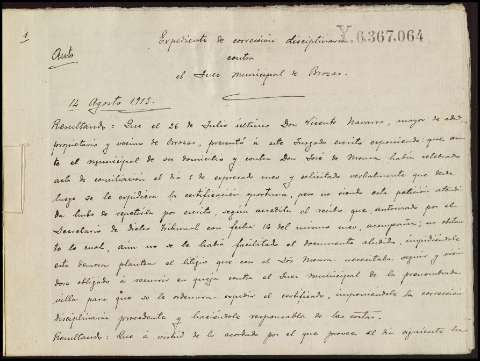 1
Y.6.367.064
Expediente de corrección disciplinaria
contra
el Juez Municipal de Brozas.
Auto
14 Agosto 1913.
Resultando: Que el 26 de Julio último Don Vicente Navarro, mayor de edad,
propietario y vecino de Brozas, presentó a este Juzgado escrito exponiendo que an-
te el municipal de su domicilio y contra Don José de Moura había celebrado
acto de conciliación el día 5 de expresado mes y solicitado verbalmente que desde
luego se le expidiera la certificación oportuna, pero no siendo esta petición atendi-
da hubo de repetirla por escrito, según acredita el recibo que autorizado por el
Secretario de dicho Tribunal con fecha 14 del mismo mes, acompaña, no obstan-
te lo cual, aun no se le había facilitado el documento aludido, impidiéndole
esta demora plantear el litigio que con el Sr. Moura necesitaba seguir y vién-
dose obligado a recurrir en queja contra el Juez Municipal de la prenombrada
villa para que se le ordenara expedir el certificado, imponiéndole la corrección
disciplinaria procedente y haciéndole responsable de las costas.
Resultando: Que a virtud de lo acordado por el que provee al día siguiente